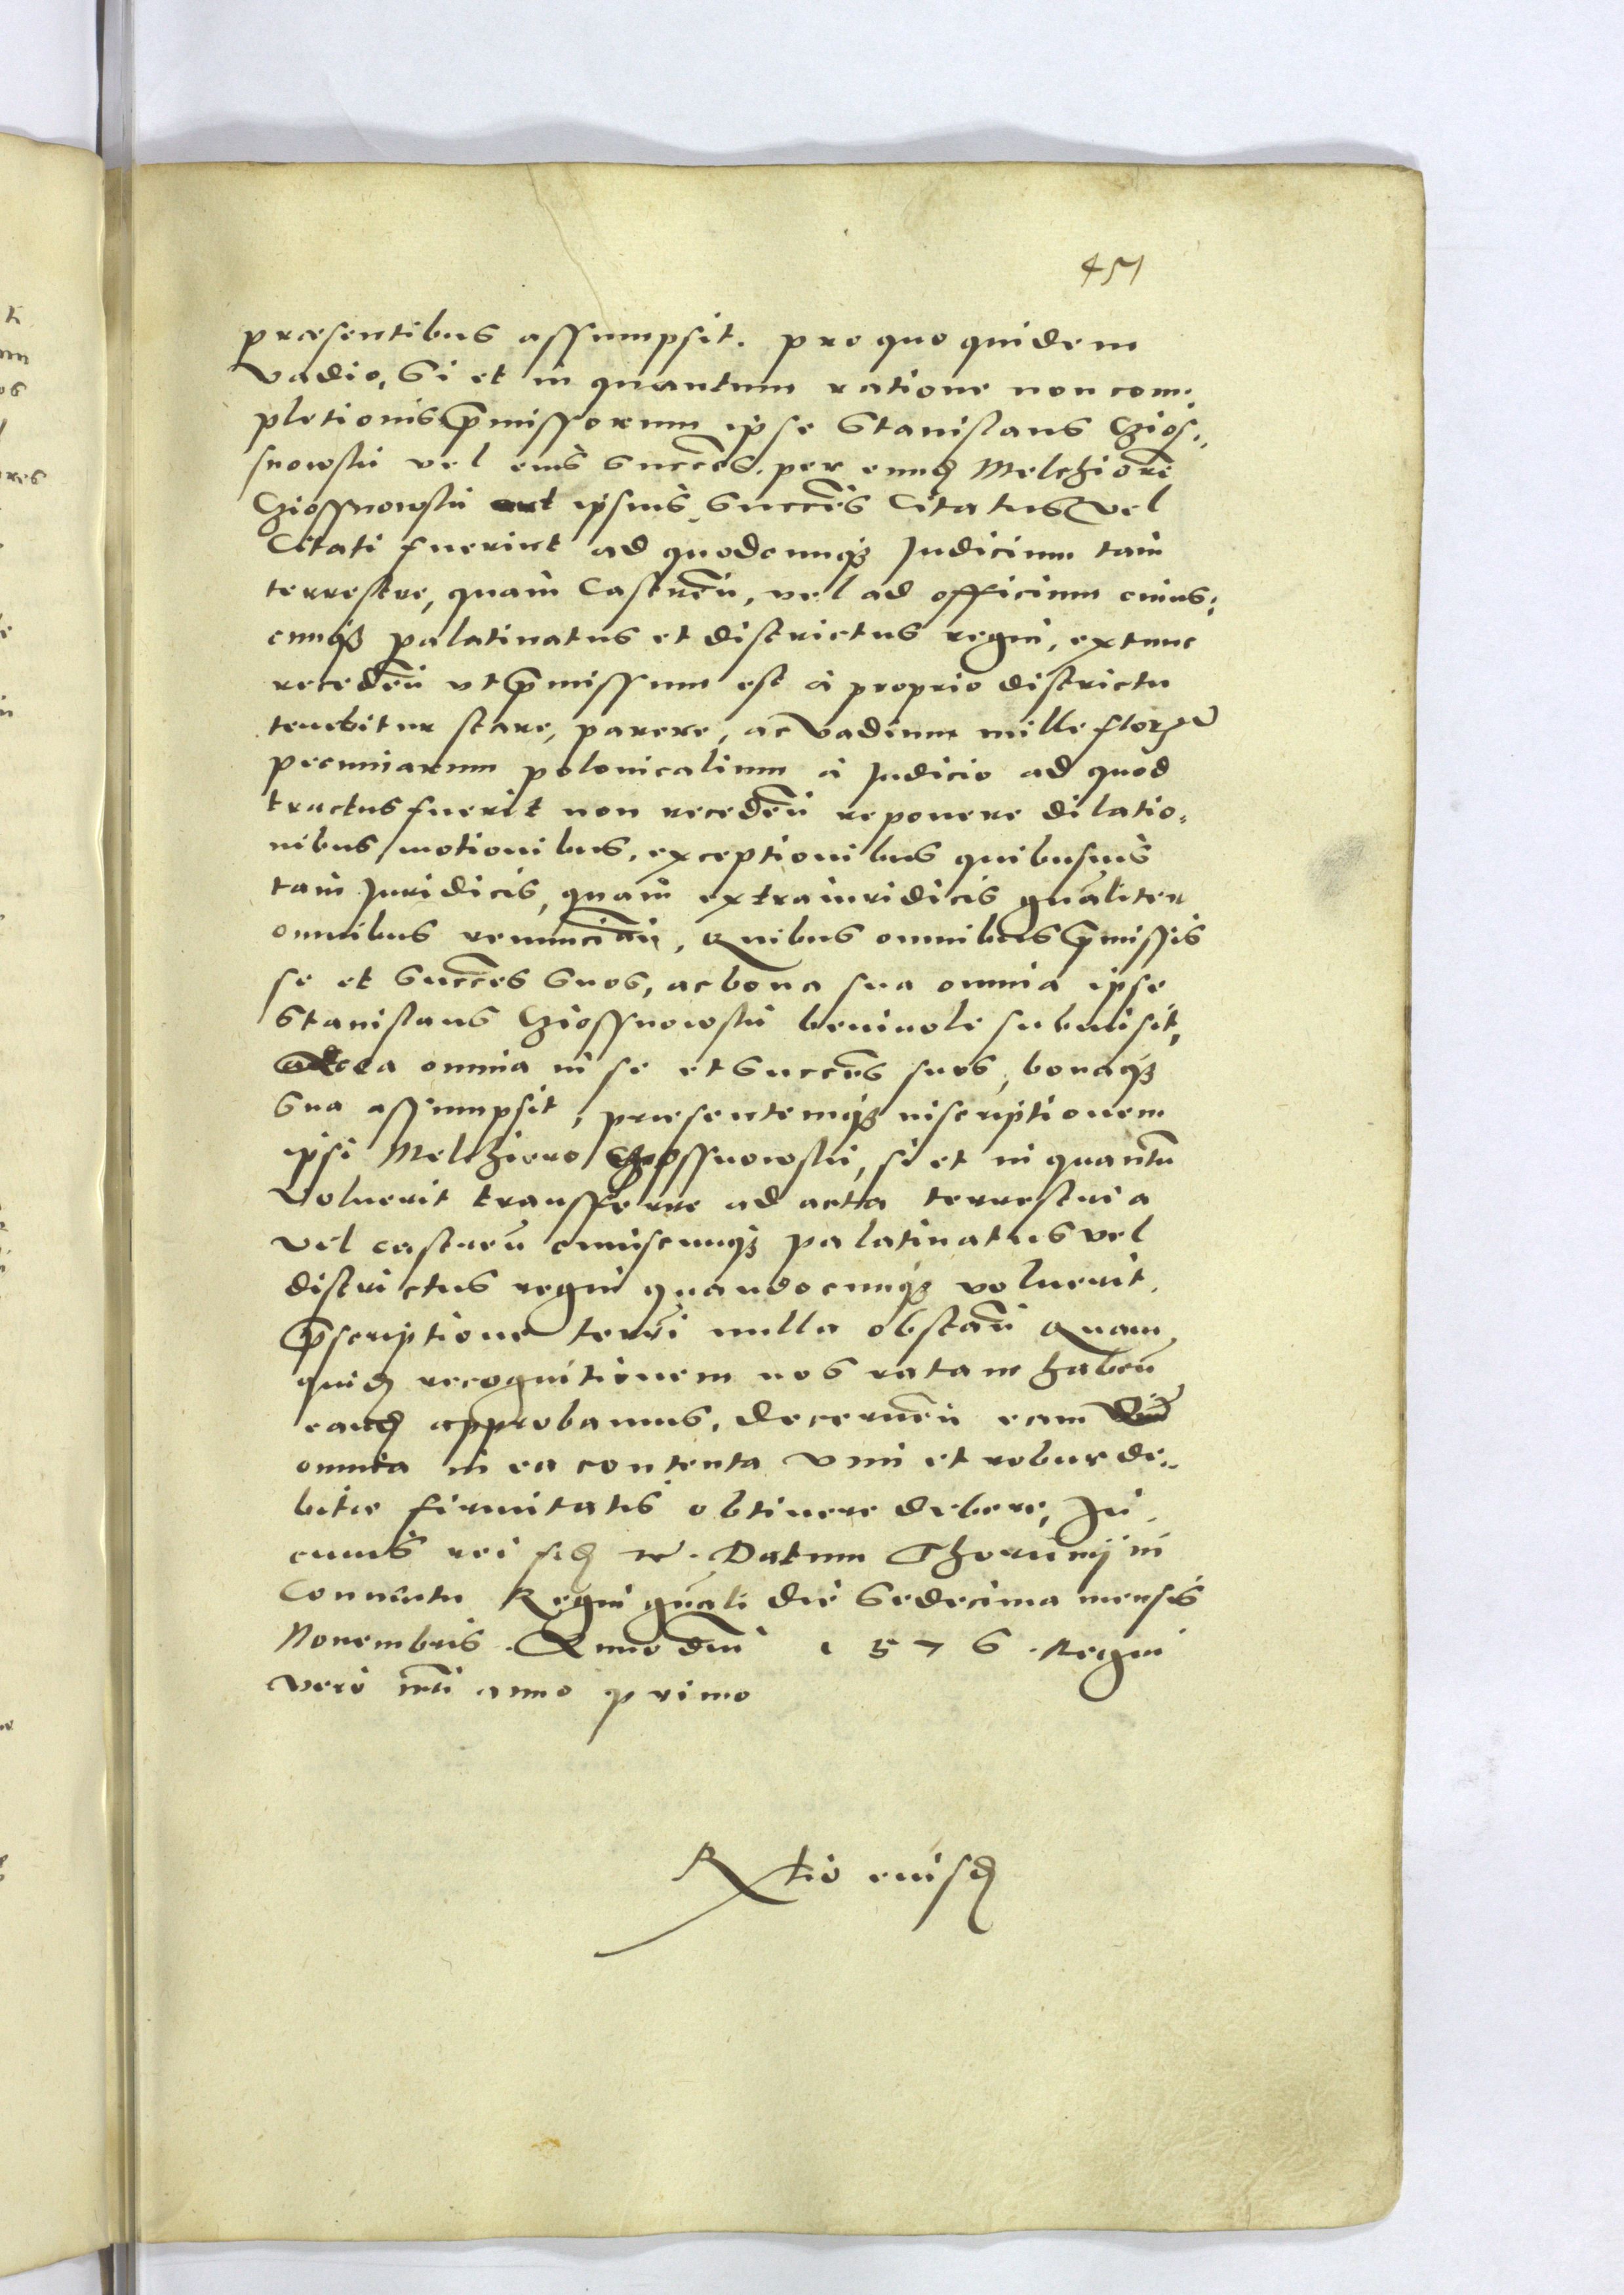 451
præsentibus assumpsit. pro quo quidem
vadio, Si et in quantum ratione non com„
pletionis p̄missorum ipse Stanislaus Gzios„
snowski vel eius Succēs. per eund Melchiorē
Gziossnowski aut ipsius Succēs Citatus vel
Citati fuerint ad quodcunq₃ Judicium tam
terrestre, quam Castreñ, vel ad officium cuius„
cunq₃ palatinatus et districtus regni, extunc
recedeñ ut p̄missum est à proprio districtu
tenebitur stare, parere, ac vadium mille flor
pecuniarum polonicalium à Judicio ad quod
tractus fuerit non recedeñ reponere dilatio„
nibus, motionibus, exceptionibus quibusvis
tam Juridicis, quam extrajuridicis gñaliter
omnibus renunciañ, Quibus omnibus p̄missis
se et Succēs suos, ac bona sua omnia ipse
Stanislaus Gziossnowski benivole submisit,
ea omnia in se et Succēs suos, bonaq₃
sua assumpsit, præsentemq₃ inscriptionem
ipsi Melchiero Gziossnowski, si et in quantū
voluerit transferre ad acta terrestria
vel castreñ cuiuscunq₃ palatinatus vel
districtus regni quandocunq₃ voluerit.
p̄scriptione terrī nulla obstañ Quam
quid recognitionem nos ratam habeñ
eand approbamus, decerneñ eam
omnia in ea contenta vim et robur de„
bitæ firmitatis obtinere debere, In
cuius rei fid etc. Datum Thorunij in
Conventu Regni gñali die Sedecima mensis
Novembris. Anno dñi 1576. Regni
vero nr̄i anno primo
Rtio eiusd